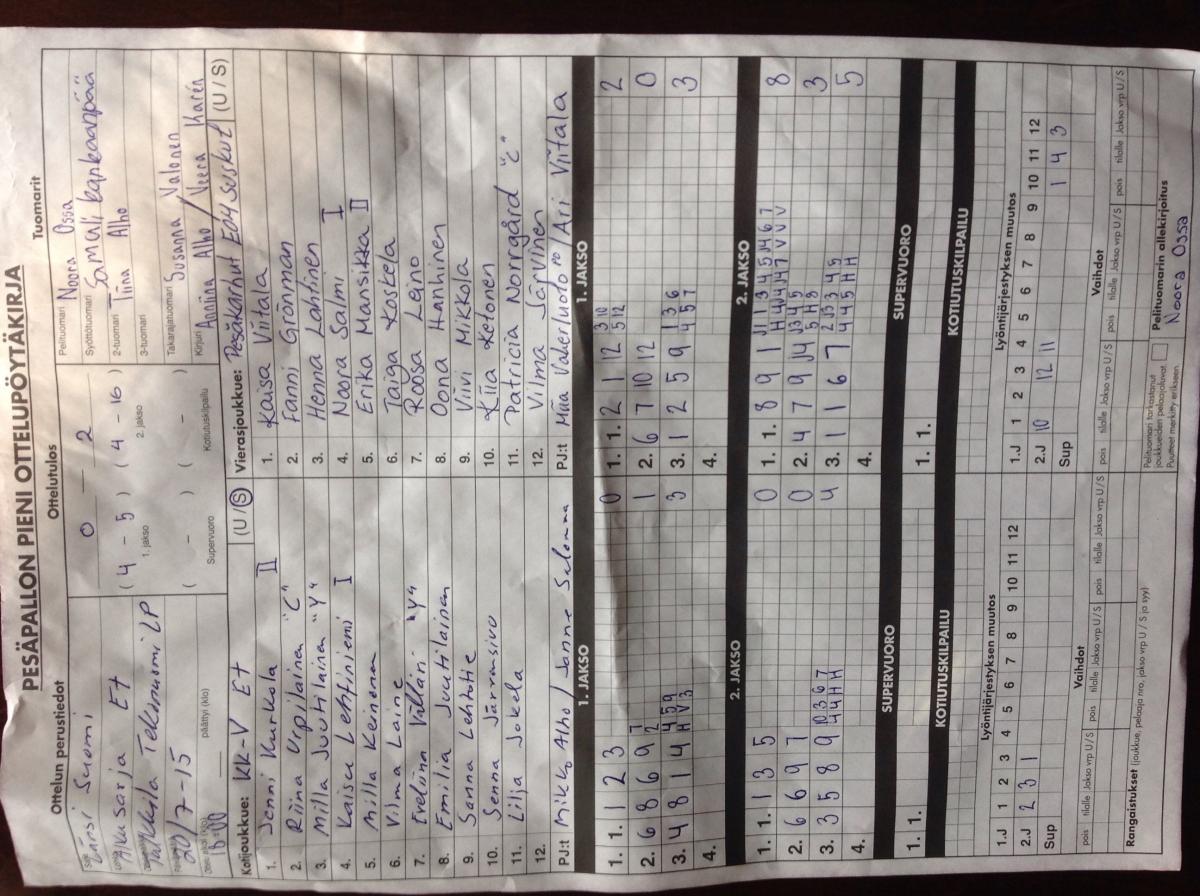 PESÄPALLON PIENI OTTELUPÖYTÄKIRJA
Ottelun perustiedot
Länsi Suomi
Aikusarja Et
Teknuomi LP
20/7-15
18:00
päättyi (klo)
Ottelutulos
0 — 2
( 4 – 5 ) ( 4 – 16 )
1. jakso 2. jakso
( – ) ( – )
Supervuoro Kotiutuskilpailu
Tuomarit
Pelituomari Noora Ossa
Syöttötuomari Samuli Kankaanpää
2-tuomari Tiina Alho
3-tuomari
Takarajatuomari Susanna Valonen
Kirjuri Anniina Alho / Neera Karén
Kotijoukkue: KK-V Et (U / S)
1. Jenni Kurkola II
2. Riina Upilainen "C"
3. Milla Juutilainen "Y"
4. Kaisu Lehtiniemi I
5. Milla Keinonen
6. Vilma Laine
7. Eveliina Villari "Y"
8. Emilia Juutilainen
9. Sanna Lehtotie
10. Senna Järvansivo
11. Lilja Jokela
12.
PJ:t Mikko Alho / Janne Salomaa
Vierasjoukkue: Pesäkarhut Edy suskut (U / S)
1. Kaisa Viitala
2. Fanni Grönman
3. Henna Lahtinen
4. Noora Salmi I
5. Erika Mansikka II
6. Taiga Koskela
7. Roosa Leino
8. Oona Hanhinen
9. Viivi Mikkola
10. Kiia Ketonen
11. Patricia Norrgård "C"
12. Vilma Järvinen
PJ:t Miia Vakerluoto PO / Ari Viitala
1. JAKSO
1. 1. 1 2 3 0
2. 6 8 6 9 7 2 1
3. 4 8 1 4 4 5 9 H V 3 3
4.
1. JAKSO
1. 1. 2 1 12 3 10 5 12 2
2. 6 7 10 12 0
3. 1 2 5 9 1 3 6 4 5 7 3
4.
2. JAKSO
1. 1. 1 3 5 0
2. 6 6 9 7 0
3. 3 5 8 9 10 3 6 7 4 4 H H 4
4.
2. JAKSO
1. 1. 8 9 1 8
2. 4 7 9 J4 J3 4 5 5 H 8 3
3. 1 1 6 7 2 J3 3 4 5 4 4 5 H H 5
4.
SUPERVUORO
1. 1.
SUPERVUORO
1. 1.
KOTIUTUSKILPAILU
KOTIUTUSKILPAILU
Lyöntijärjestyksen muutos
1 2 3 4 5 6 7 8 9 10 11 12
1.J
2.J 2 3 1
Sup
Lyöntijärjestyksen muutos
1 2 3 4 5 6 7 8 9 10 11 12
1.J
2.J 10 12 11 1 4 3
Sup
Vaihdot
pois tilalle Jakso vrp U / S pois tilalle Jakso vrp U / S
Vaihdot
pois tilalle Jakso vrp U / S pois tilalle Jakso vrp U / S pois tilalle Jakso vrp U / S
Rangaistukset (joukkue, pelaaja nro, jakso vrp U / S ja syy)
Pelituomari tarkastanut
joukkueiden pelaajaluvat.
Puutteet merkitty erikseen.
Pelituomarin allekirjoitus
Noora Ossa